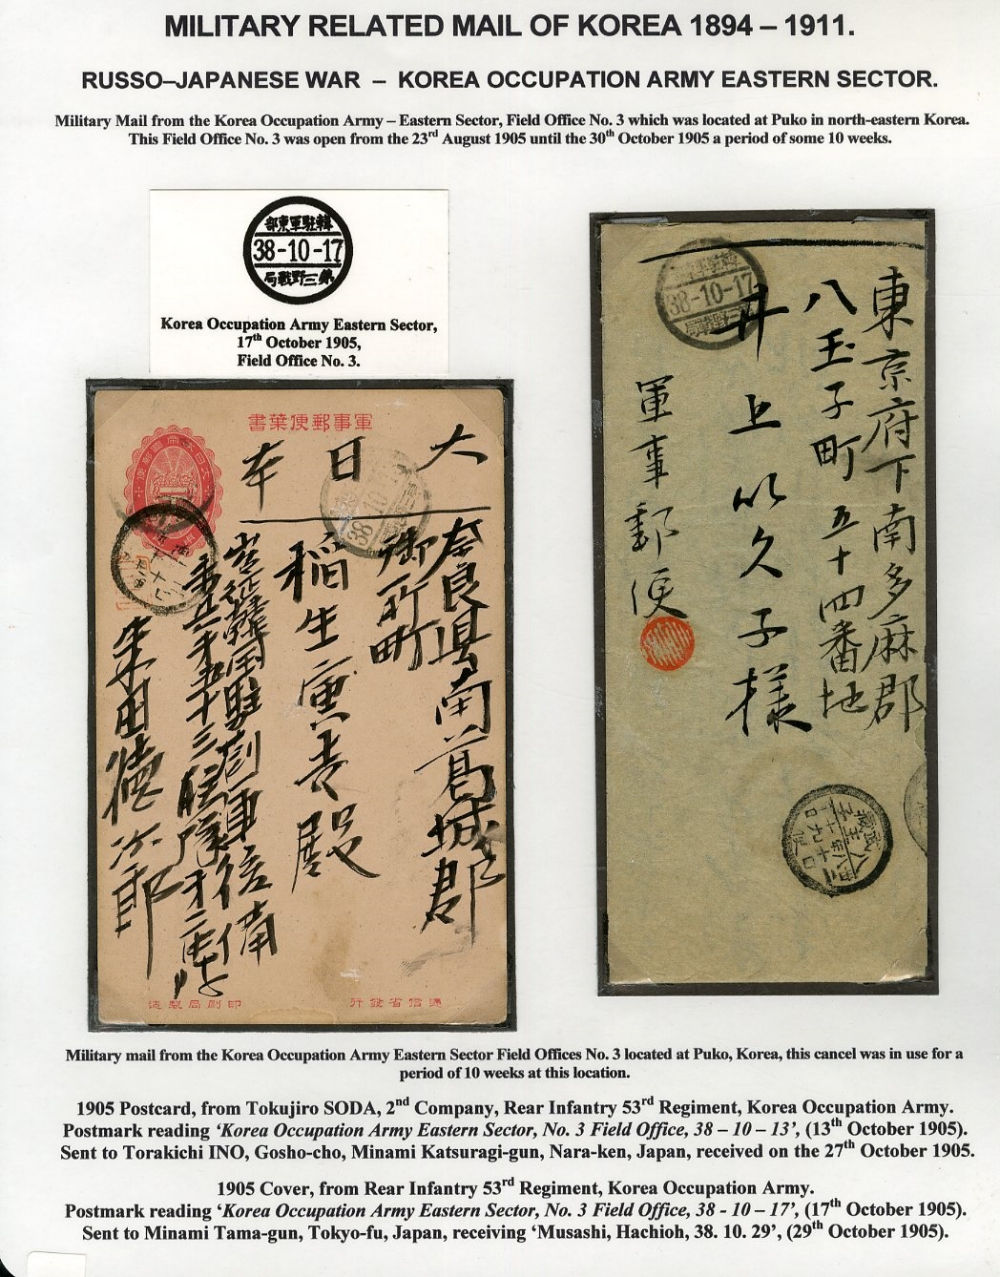 MILITARY RELATED MAIL OF KOREA 1894 – 1911.
RUSSO–JAPANESE WAR – KOREA OCCUPATION ARMY EASTERN SECTOR.
Military Mail from the Korea Occupation Army – Eastern Sector, Field Office No. 3 which was located at Puko in north-eastern Korea.
This Field Office No. 3 was open from the 23rd August 1905 until the 30th October 1905 a period of some 10 weeks.
部東軍駐韓
38-10-17
局戰野三第
Korea Occupation Army Eastern Sector,
17th October 1905,
Field Office No. 3.
書葉便郵事軍
大日本
奈良県南葛城郡
御所町
稲生寅吉殿
造製局刷印
行發省信遞
38-10-17
東京府下南多麻郡
八王子町五十四番地
井上以久子様
軍事郵便
武蔵
八王子
Military mail from the Korea Occupation Army Eastern Sector Field Offices No. 3 located at Puko, Korea, this cancel was in use for a
period of 10 weeks at this location.
1905 Postcard, from Tokujiro SODA, 2nd Company, Rear Infantry 53rd Regiment, Korea Occupation Army.
Postmark reading ‘Korea Occupation Army Eastern Sector, No. 3 Field Office, 38 – 10 – 13’, (13th October 1905).
Sent to Torakichi INO, Gosho-cho, Minami Katsuragi-gun, Nara-ken, Japan, received on the 27th October 1905.
1905 Cover, from Rear Infantry 53rd Regiment, Korea Occupation Army.
Postmark reading ‘Korea Occupation Army Eastern Sector, No. 3 Field Office, 38 - 10 – 17’, (17th October 1905).
Sent to Minami Tama-gun, Tokyo-fu, Japan, receiving ‘Musashi, Hachioh, 38. 10. 29’, (29th October 1905).